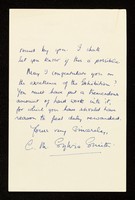 round by you I shall
let you know if this a possible
May I congratulate you on
the excellence of the Exhibition?
You must have put a tremendous
amount of hard work into it,
for which you should have
reason to feel duly rewarded.
Yours very sincerely,
C. M.